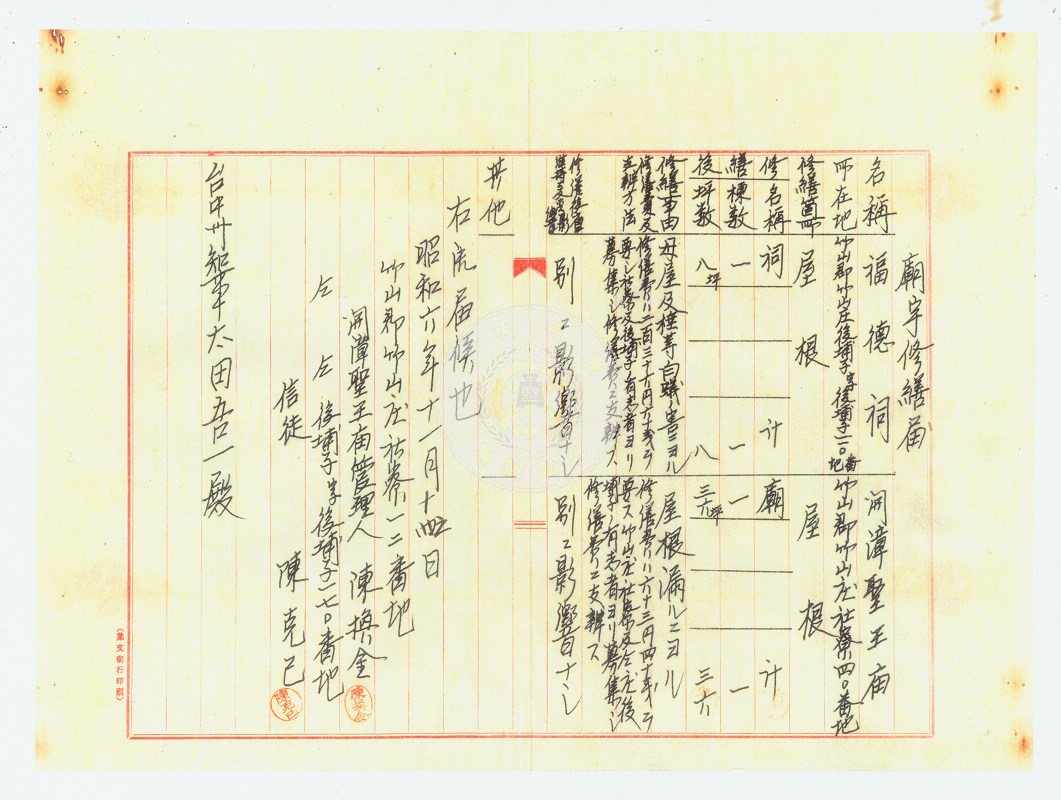 廟宇修繕届
名稱 福德祠 開漳聖王庙
所在地 竹山郡竹山庄後埔子字後埔子二一〇番地 竹山郡竹山庄社寮四〇番地
修繕箇所 屋根 屋根
修繕後 名稱 祠 計 廟 計
棟数 一 一 一 一
坪数 八坪 八 三六坪 三六
修繕事由 母屋及棰等白蟻害ニヨル 屋根漏ルニヨル
修繕費及支辨方法 修繕費ハ二百三十六円六十銭ヲ要シ社寮及後埔子有志者ヨリ募集シ修繕費ニ支辨ス 修繕費ハ六十三円四十銭ヲ要ス竹山庄社寮及仝庄後埔子ノ有志者ヨリ募集シ修繕費ニ支辨ス
別ニ影響ナシ 別ニ影響ナシ
其他
右及届候也
昭和六年十一月十四日
竹山郡竹山庄社寮一二番地
開漳聖王庙管理人 陳換金
仝 仝 後埔子字後埔子二七〇番地
信徒 陳克己
台中州知事太田吾一殿
(集文堂行印刷)